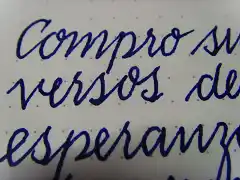 Compro su
versos de
esperanz